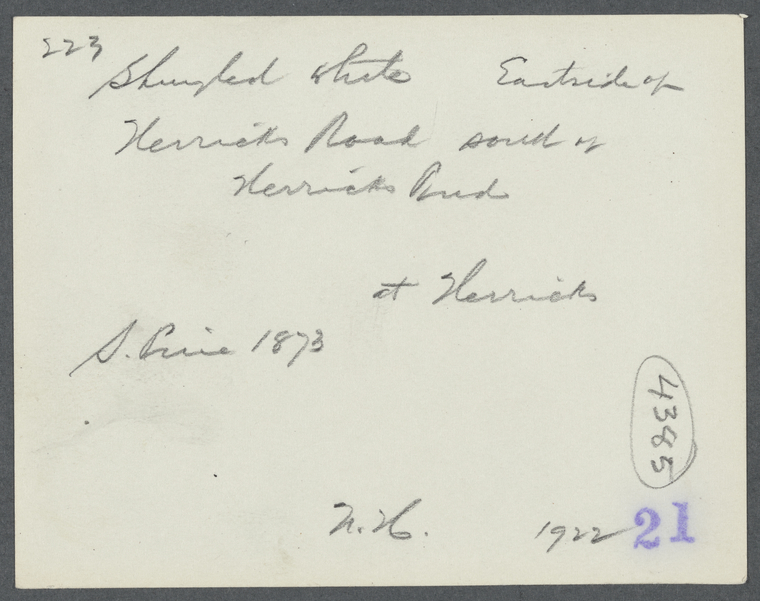 223
Shingled white Eastside of
Herricks Road south of
Herricks Pond
at Herricks
S. Pine 1873
4385
N.H. 1922 21